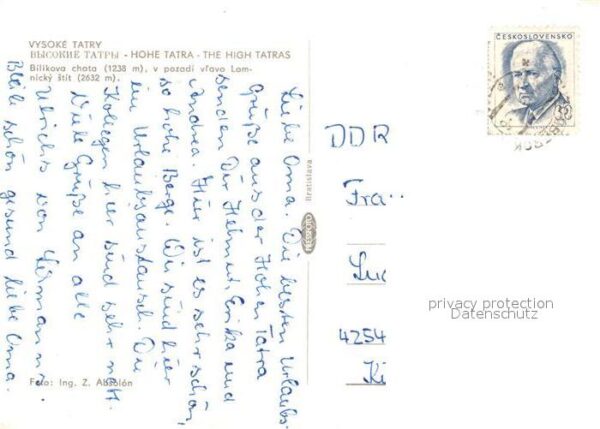 VYSOKÉ TATRY
ВЫСОКИЕ ТАТРЫ - HOHE TATRA - THE HIGH TATRAS
Bílikova chata (1238 m), v pozadí vľavo Lom-
nický štít (2632 m).
Liebe Oma. Die besten Urlaubs-
grüße aus der Hohen Tatra
senden Dir Helmut, Erika und
Andrea. Hier ist es sehr schön,
so hohe Berge. Wir sind hier
im Urlaubsaustausch. Die
Kollegen hier sind sehr nett.
Viele Grüße an alle
Ullrichs von
Bleibe schön gesund liebe Oma.
Foto: Ing. Z. Absolón
Bratislava
ČESKOSLOVENSKO
DDR
Fra
4254
privacy protection
Datenschutz